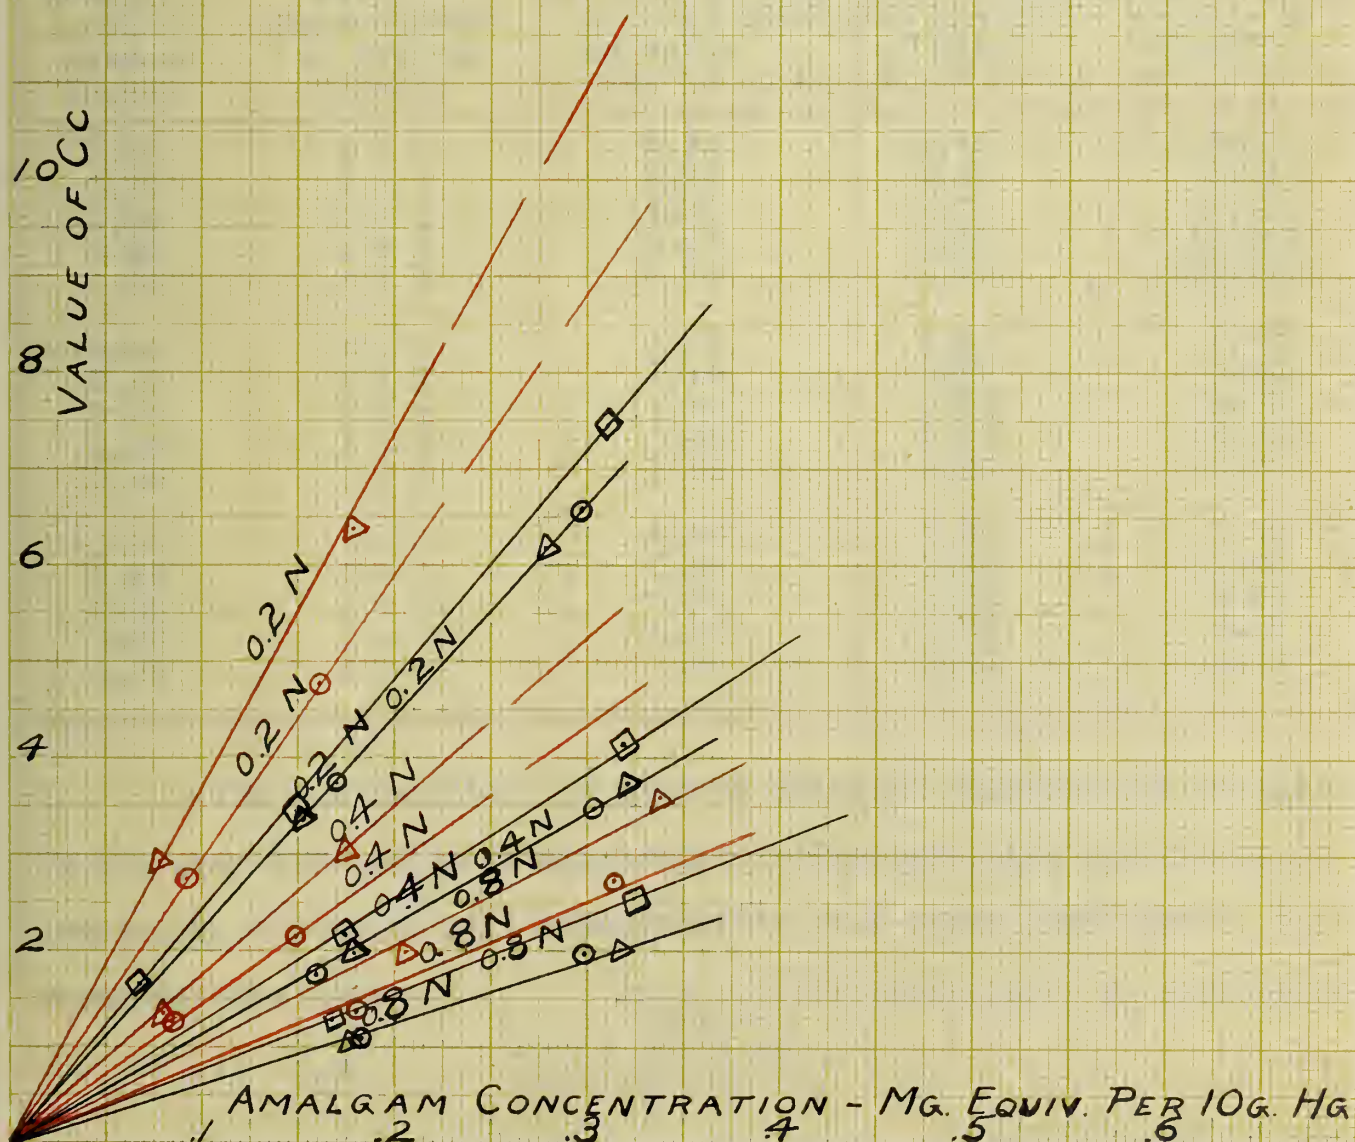 VALUE OF Cc
10
8
6
4
2
0.2 N
0.2 N
0.2 N
0.2 N
0.4 N
0.4 N
0.4 N
0.4 N
0.8 N
0.8 N
0.8 N
0.8 N
AMALGAM CONCENTRATION - MG. EQUIV. PER 10G. HG
.1 .2 .3 .4 .5 .6